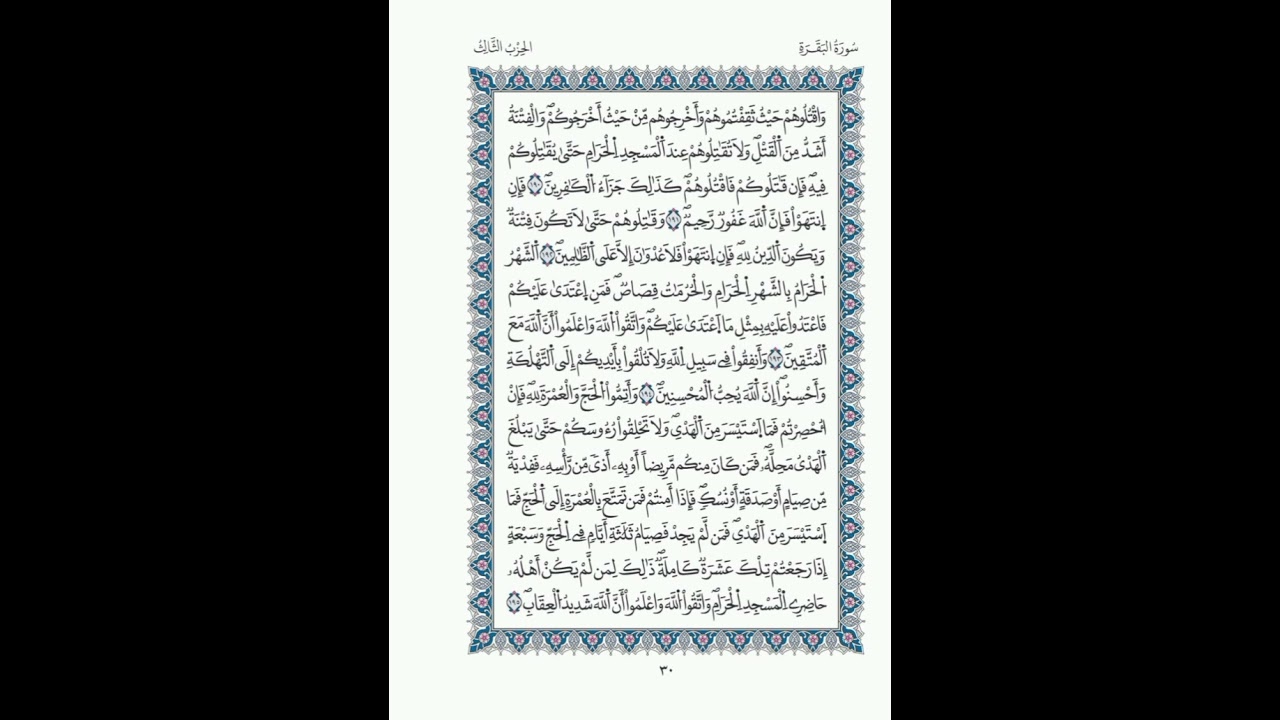 سُورَةُ البَقَرَةِ
الحِزْبُ الثَّالِثُ
وَاقْتُلُوهُمْ حَيْثُ ثَقِفْتُمُوهُمْ وَأَخْرِجُوهُم مِّنْ حَيْثُ أَخْرَجُوكُمْۖ وَالْفِتْنَةُ
أَشَدُّ مِنَ اَ۬لْقَتْلِۖ وَلَا تُقَٰتِلُوهُمْ عِندَ اَ۬لْمَسْجِدِ اِ۬لْحَرَامِ حَتَّىٰ يُقَٰتِلُوكُمْ
فِيهِۖ فَإِن قَٰتَلُوكُمْ فَاقْتُلُوهُمْۖ كَذَٰلِكَ جَزَآءُ اُ۬لْكَٰفِرِينَۖ ١٩٠ فَإِنِ
اِ۪نتَهَوْاْ فَإِنَّ اَ۬للَّهَ غَفُورٌ رَّحِيمٌۖ ١٩١ وَقَٰتِلُوهُمْ حَتَّىٰ لَا تَكُونَ فِتْنَةٌۖ
وَيَكُونَ اَ۬لدِّينُ لِلهِۖ فَإِنِ اِ۪نتَهَوْاْ فَلَا عُدْوَٰنَ إِلَّا عَلَى اَ۬لظَّٰلِمِينَۖ ١٩٢ اَ۬لشَّهْرُ
اُ۬لْحَرَامُ بِالشَّهْرِ اِ۬لْحَرَامِ وَالْحُرُمَٰتُ قِصَاصٌۖ فَمَنِ اِ۪عْتَدَىٰ عَلَيْكُمْ
فَاعْتَدُواْ عَلَيْهِ بِمِثْلِ مَا اَ۪عْتَدَىٰ عَلَيْكُمْۖ وَاتَّقُواْ اُ۬للَّهَ وَاعْلَمُواْ أَنَّ اَ۬للَّهَ مَعَ
اَ۬لْمُتَّقِينَۖ ١٩٣ وَأَنفِقُواْ فِے سَبِيلِ اِ۬للَّهِ وَلَا تُلْقُواْ بِأَيْدِيكُمْ إِلَى اَ۬لتَّهْلُكَةِ
وَأَحْسِنُواْۖ إِنَّ اَ۬للَّهَ يُحِبُّ اُ۬لْمُحْسِنِينَۖ ١٩٤ وَأَتِمُّواْ اُ۬لْحَجَّ وَالْعُمْرَةَ لِلهِۖ فَإِنْ
أُحْصِرْتُمْ فَمَا اَ۪سْتَيْسَرَ مِنَ اَ۬لْهَدْيِۖ وَلَا تَحْلِقُواْ رُءُوسَكُمْ حَتَّىٰ يَبْلُغَ
اَ۬لْهَدْيُ مَحِلَّهُۥۖ فَمَن كَانَ مِنكُم مَّرِيضاً أَوْ بِهِۦ أَذىٗ مِّن رَّأْسِهِۦ فَفِدْيَةٌۖ
مِّن صِيَامٍ أَوْ صَدَقَةٍ أَوْ نُسُكٍۖ فَإِذَا أَمِنتُمْ فَمَن تَمَتَّعَ بِالْعُمْرَةِ إِلَى اَ۬لْحَجِّ فَمَا
اَ۪سْتَيْسَرَ مِنَ اَ۬لْهَدْيِۖ فَمَن لَّمْ يَجِدْ فَصِيَامُ ثَلَٰثَةِ أَيَّامٍ فِے اِ۬لْحَجِّ وَسَبْعَةٍ
إِذَا رَجَعْتُمْ تِلْكَ عَشَرَةٌ كَامِلَةٌۖ ذَٰلِكَ لِمَن لَّمْ يَكُنْ أَهْلُهُۥ
حَاضِرِے اِ۬لْمَسْجِدِ اِ۬لْحَرَامِۖ وَاتَّقُواْ اُ۬للَّهَ وَاعْلَمُواْ أَنَّ اَ۬للَّهَ شَدِيدُ اُ۬لْعِقَابِۖ ١٩٥
٣٠